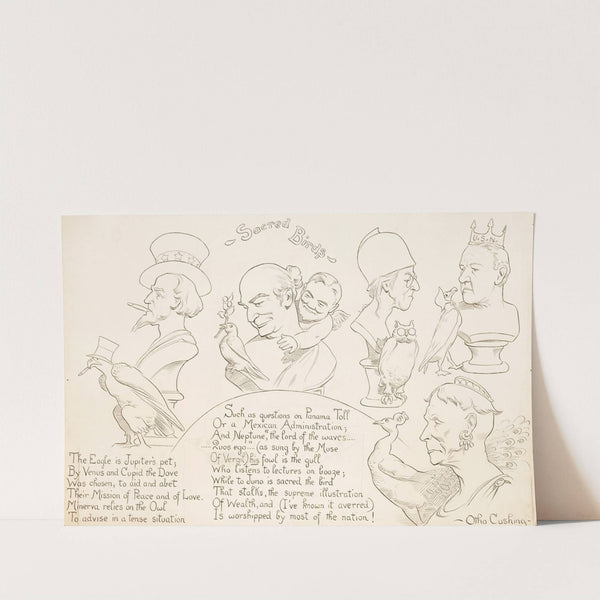 Sacred Birds
U.S.N.
The Eagle is Jupiter's pet;
By Venus and Cupid the Dove
Was chosen, to aid and abet
Their Mission of Peace and of Love.
Minerva relies on the Owl
To advise in a tense situation
Such as questions on Panama Toll
Or a Mexican Administration;
And Neptune, "the lord of the waves....
.....Quos ego..." (as sung by the Muse
Of Vergil) his fowl is the gull
Who listens to lectures on booze;
While to Juno is sacred the bird
That stalks, the supreme illustration
Of Wealth, and (I've known it averred)
Is worshipped by most of the nation!
- Otho Cushing -